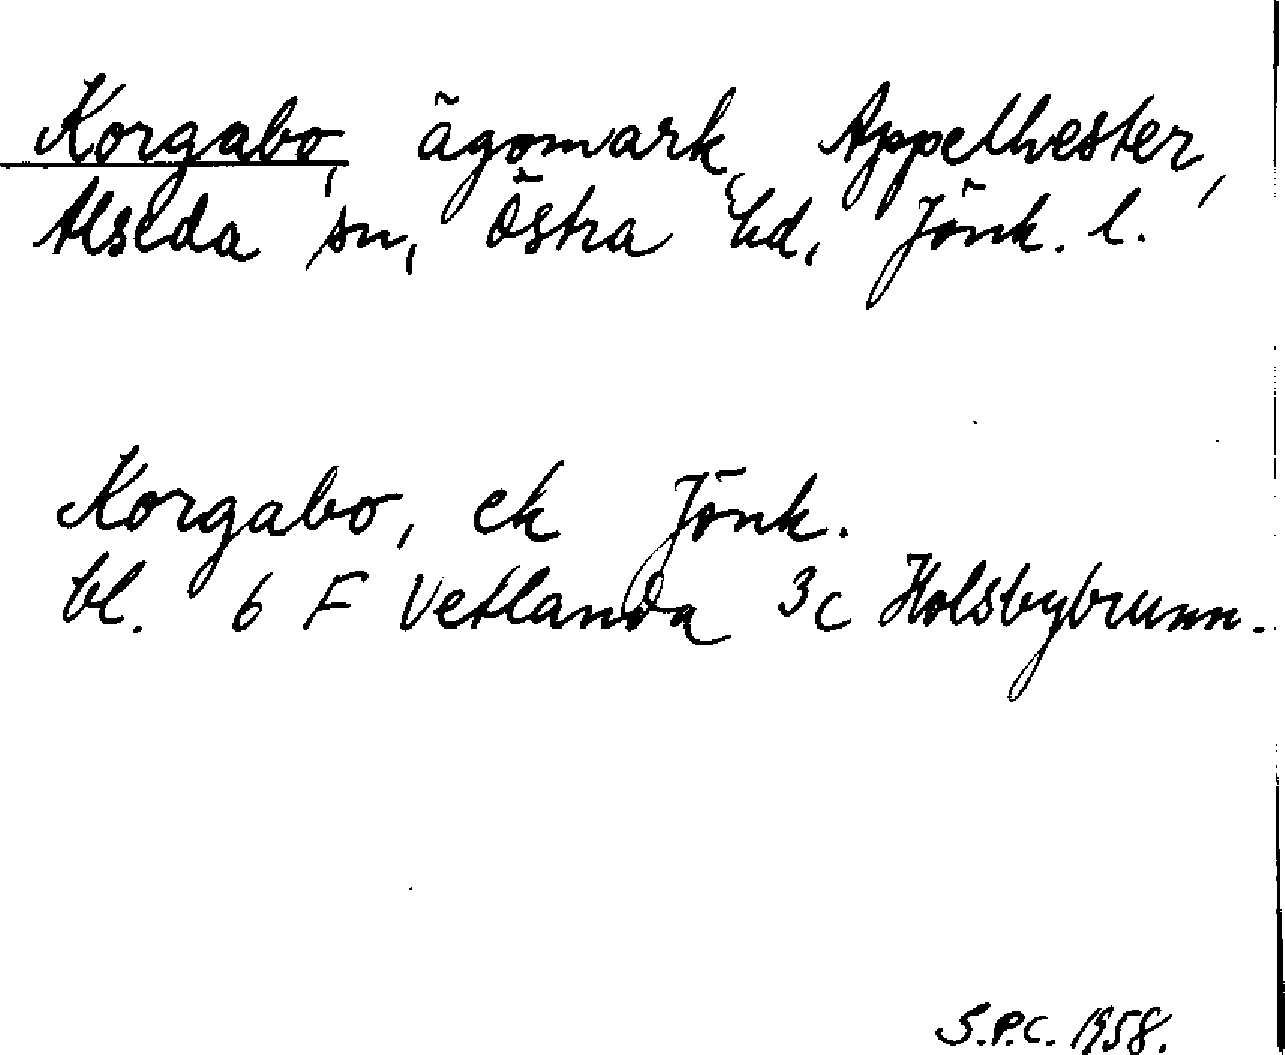 Korgabo, ägomark, Appelhester,
Alseda sn, Östra hd, Jönk. l.
Korgabo, ek Jönk.
bl. 6 F Vetlanda 3c Holsbybrunn.
S.P.C. 1958.